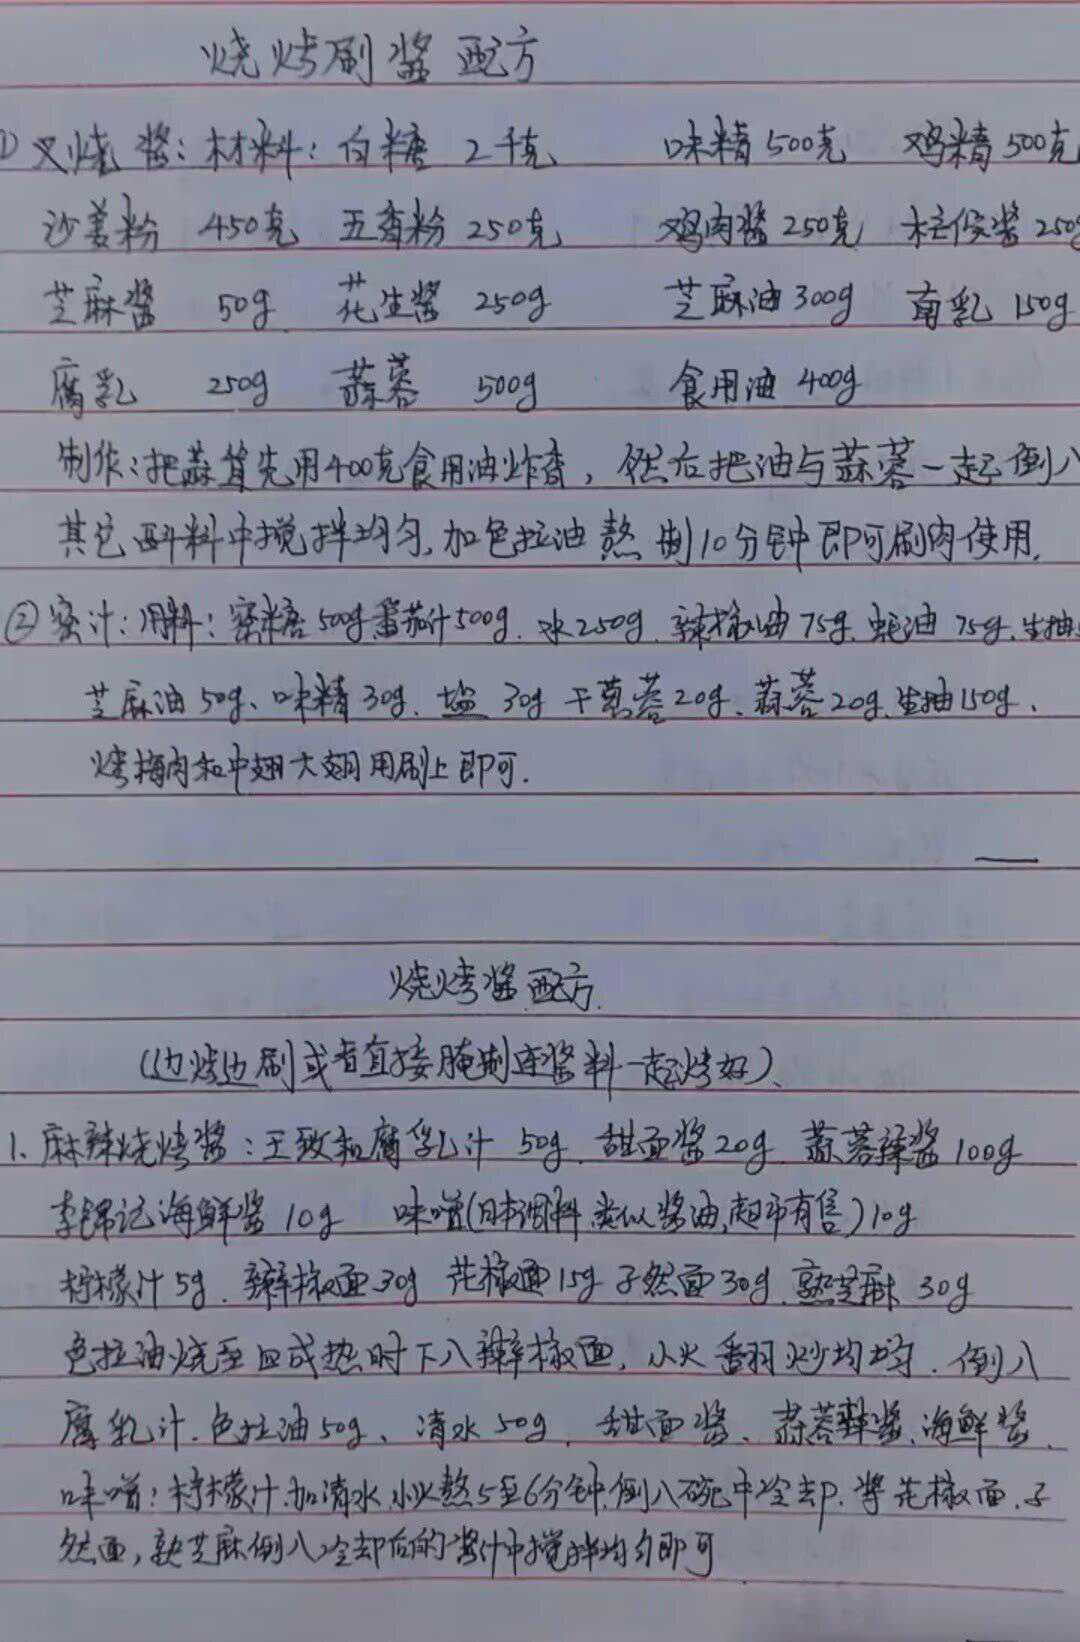 烧烤刷酱配方
① 叉烧酱：材料：白糖 2千克 味精500克 鸡精500克
沙姜粉 450克 五香粉 250克 鸡肉酱250克 柱侯酱250g
芝麻酱 50g 花生酱 250g 芝麻油300g 南乳 150g
腐乳 250g 蒜蓉 500g 食用油 400g
制作：把蒜茸先用400克食用油炸香，然后把油与蒜蓉一起倒入
其它酱料中搅拌均匀，加色拉油熬制10分钟即可刷肉使用。
② 蜜汁：用料：蜜糖500g 番茄汁500g、水250g、辣椒油75g、蚝油75g、生抽
芝麻油50g、味精30g、盐30g 干葱蓉20g、蒜蓉20g、生抽150g、
烤梅肉和中翅大翅用刷上即可.
烧烤酱配方.
(边烤边刷或者直接腌制连酱料一起烤好)、
1. 麻辣烧烤酱：王致和腐乳汁 50g 甜面酱20g 蒜蓉辣酱100g
李锦记海鲜酱10g 味噌(日本调料,类似酱油,超市有售)10g
柠檬汁5g、辣椒面30g 花椒面15g 孑然面30g、熟芝麻30g
色拉油烧至四成热时下入辣椒面，小火翻炒均匀、倒入
腐乳汁、色拉油50g、清水50g、甜面酱、蒜蓉辣酱、海鲜酱、
味噌：柠檬汁、加清水、小火熬5至6分钟,倒入碗中冷却、将花椒面、孑
然面，熟芝麻倒入冷却后的酱汁中搅拌均匀即可